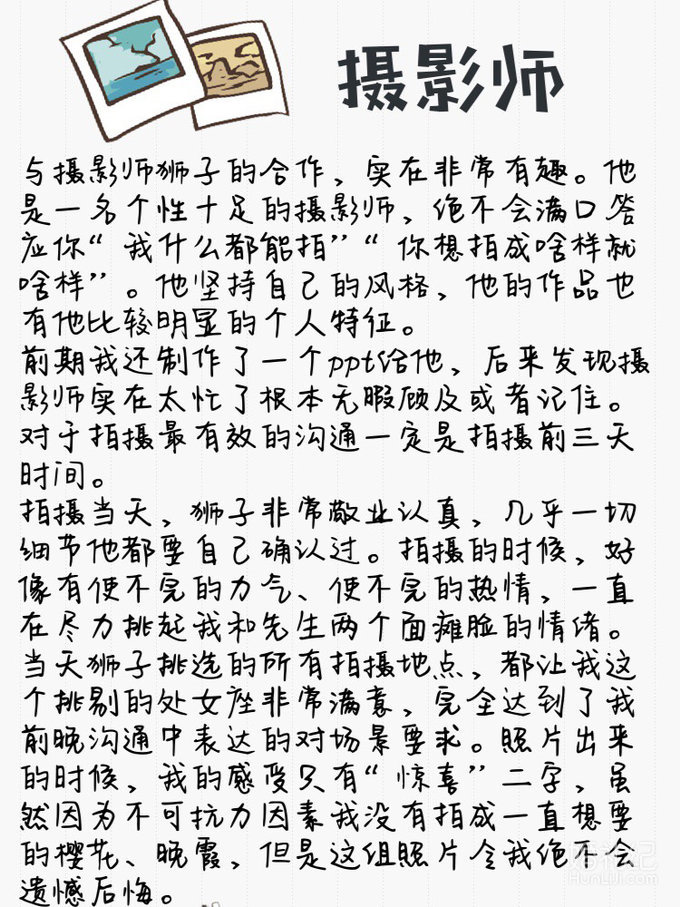 摄影师
与摄影师狮子的合作，实在非常有趣。他
是一名个性十足的摄影师，绝不会满口答
应你“我什么都能拍”“你想拍成啥样就
啥样”。他坚持自己的风格，他的作品也
有他比较明显的个人特征。
前期我还制作了一个ppt给他，后来发现摄
影师实在太忙了根本无暇顾及或者记住。
对于拍摄最有效的沟通一定是拍摄前三天
时间。
拍摄当天，狮子非常敬业认真，几乎一切
细节他都要自己确认过。拍摄的时候，好
像有使不完的力气、使不完的热情，一直
在尽力挑起我和先生两个面瘫脸的情绪。
当天狮子挑选的所有拍摄地点，都让我这
个挑剔的处女座非常满意，完全达到了我
前晚沟通中表达的对场景要求。照片出来
的时候，我的感受只有“惊喜”二字，虽
然因为不可抗力因素我没有拍成一直想要
的樱花、晚霞，但是这组照片令我绝不会
遗憾后悔。
HunLiJi.com